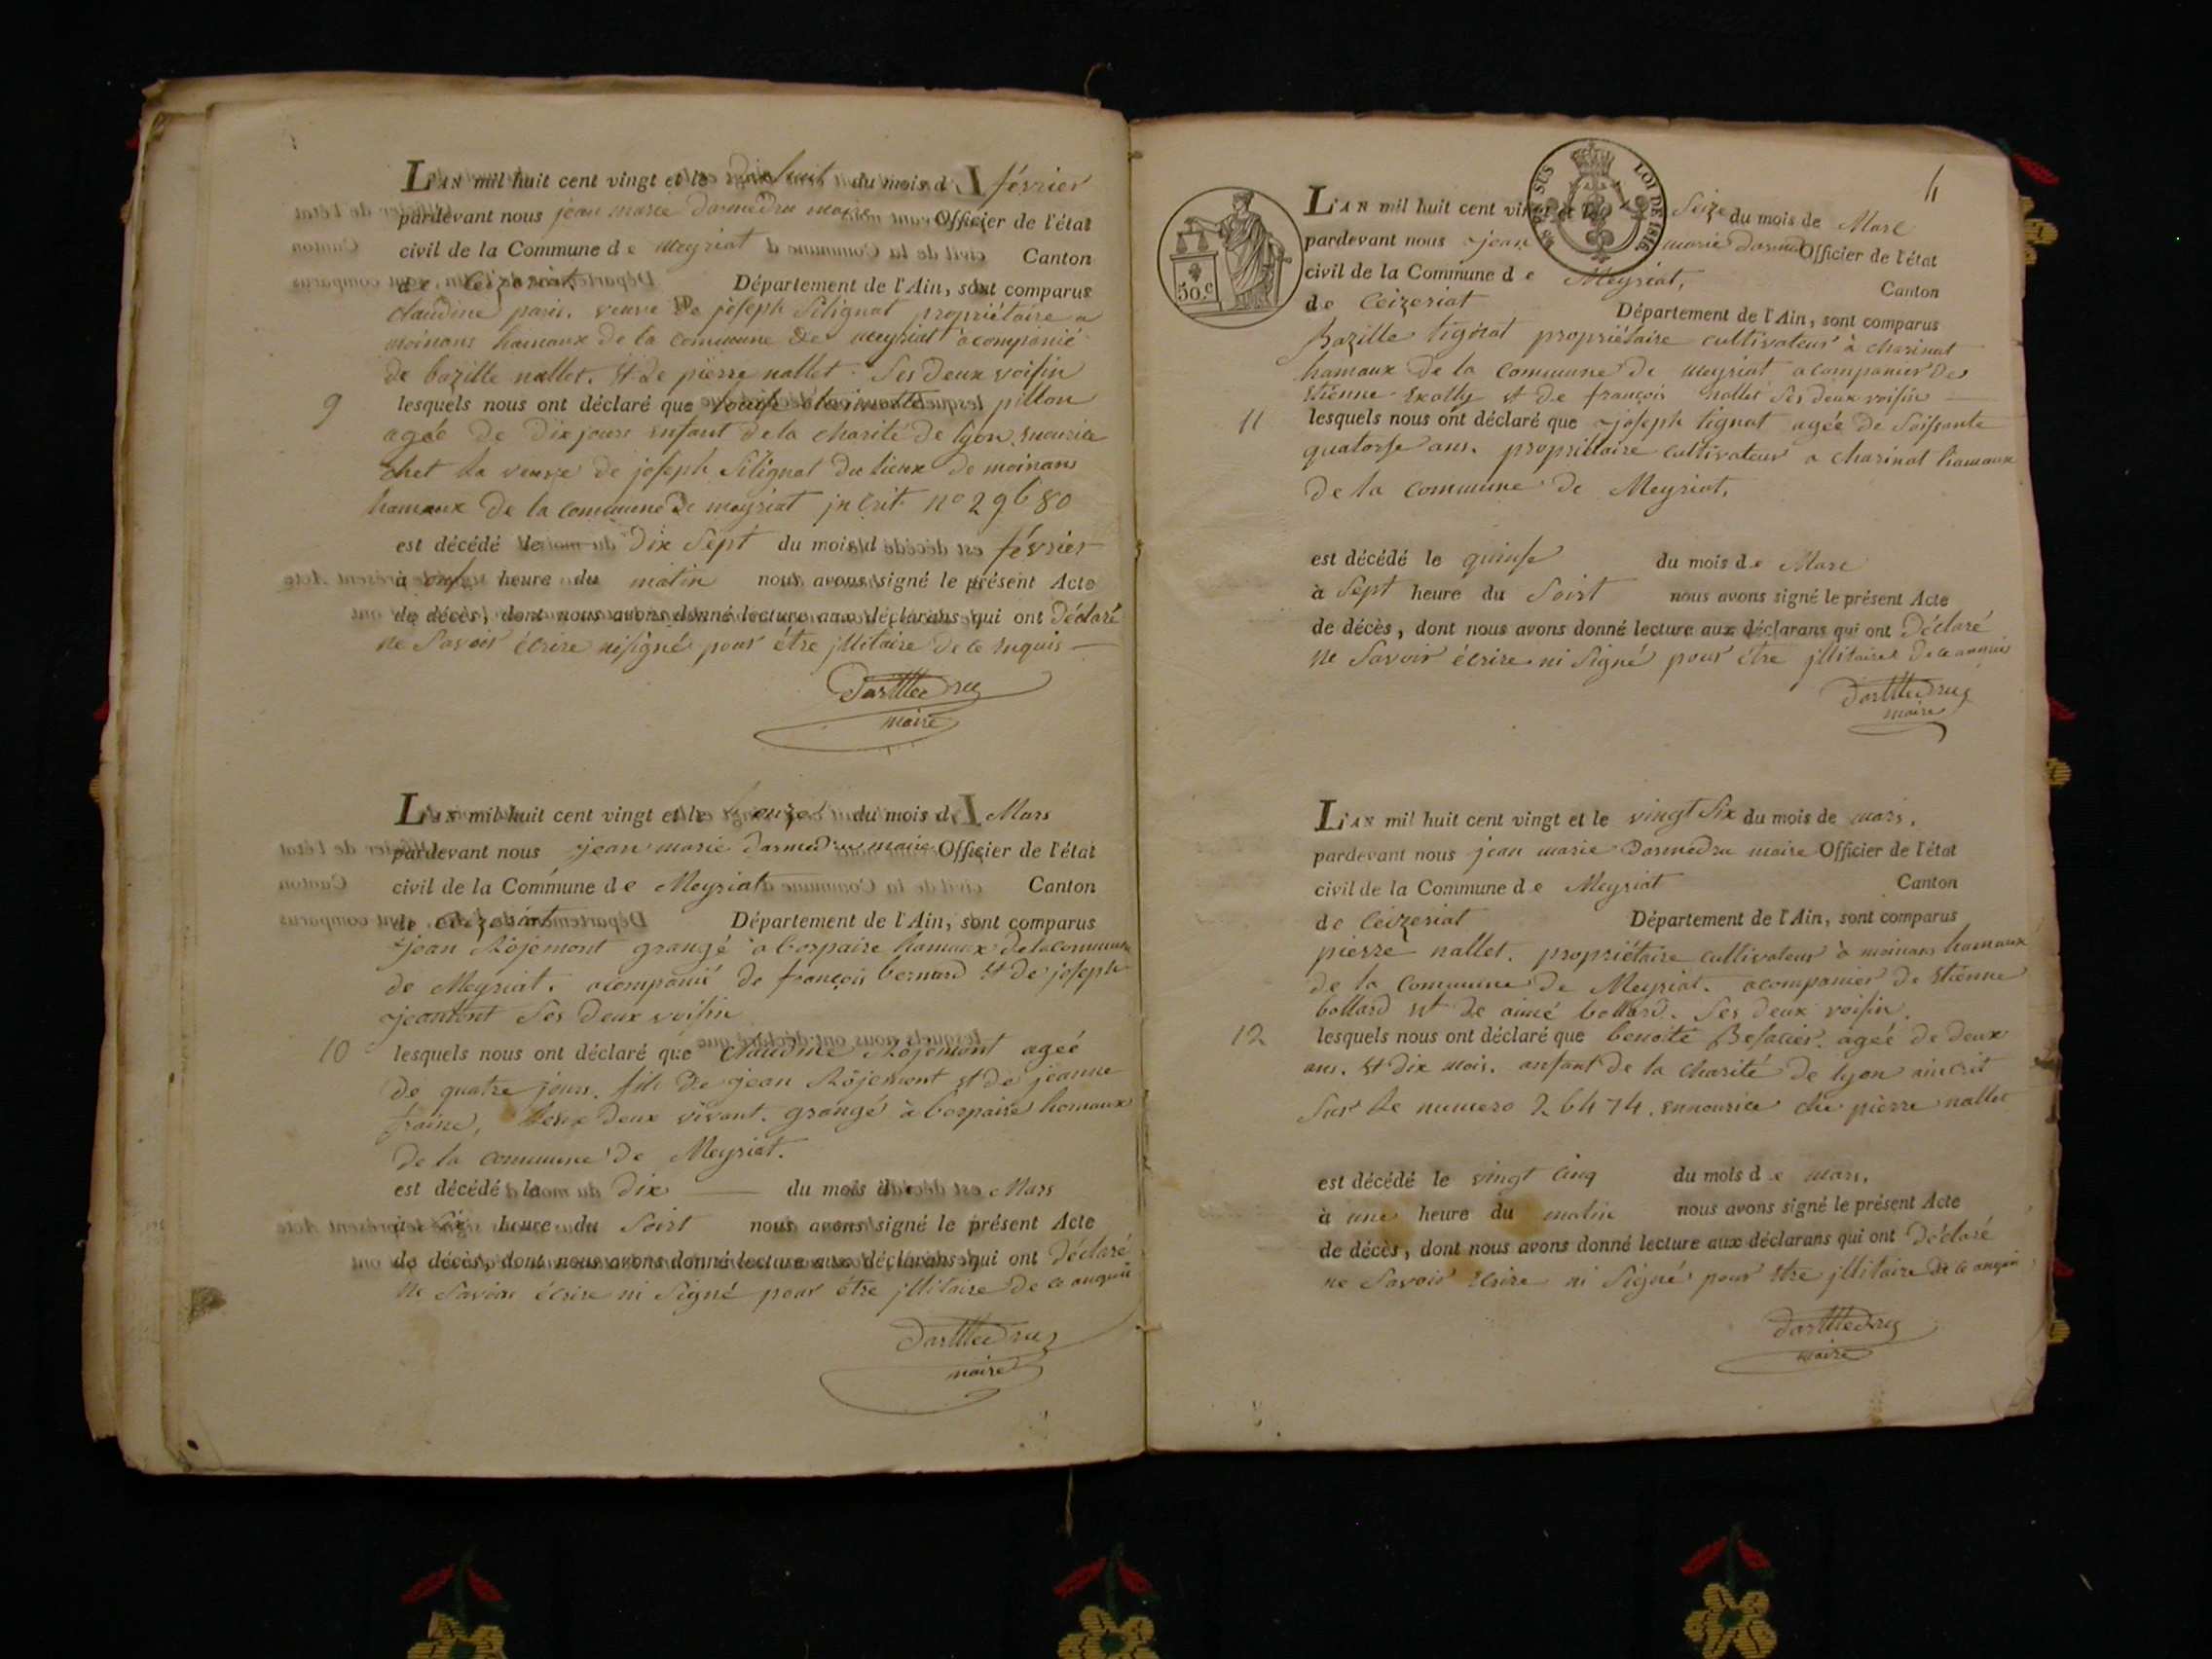 L'AN mil huit cent vingt et le dix huit du mois d février
pardevant nous jean marie darmedru maire Officier de l'état
civil de la Commune de meyriat Canton
de Ceizeriat Département de l'Ain, sont comparus
claudine paris, veuve de joseph Silignat propriétaire a
moinans hamaux de la commune de meyriat acompanié
de bazille nallet. et de pierre nallet. Ses deux voisin
9 lesquels nous ont déclaré que pillon
agée de dix jours enfant de la charité de lyon ennourice
chet la veuve de joseph Silignat du lieux de moinans
hamaux de la commune de meyriat jn crit no 29680
est décédé le dix Sept du mois d février
à onse heure du matin nous avons signé le présent Acte
de décès, dont nous avons donné lecture aux déclarans qui ont déclaré
ne Savoir écrire ni signé pour être jllitaire de ce enquis
DarMedru
maire
L'AN mil huit cent vingt et le onze du mois d Mars
pardevant nous jean marie darmedru maire Officier de l'état
civil de la Commune de Meyriat Canton
de Ceizeriat Département de l'Ain, sont comparus
jean Rojemont grangé a borpaire hamaux de la commune
de Meyriat. acompanié de françois bernard et de joseph
jeantent Ses deux voisin
10 lesquels nous ont déclaré que claudine Rojemont ageé
de quatre jours, fille de jean Rojemont et de jeanne
deux vivant. grangé à borpaire hamaux
de la commune de Meyriat.
est décédé le dix du mois d Mars
à Six heure du Soirt nous avons signé le présent Acte
de décès, dont nous avons donné lecture aux déclarans qui ont déclaré
ne Savoir écrire ni Signé pour être jllitaire de ce anquis
DarMedru
maire
4
50.c
SUS
LOI DE 1816
L'AN mil huit cent vingt et le Seize du mois de Mars
pardevant nous jean marie darmed Officier de l'état
civil de la Commune de Meyriat, Canton
de Ceizeriat Département de l'Ain, sont comparus
bazille tignat propriétaire cultivateur à charinat
hamaux de la commune de meyriat acompanier de
etienne et de françois nallet Ses deux voisin
11 lesquels nous ont déclaré que joseph tignat agée de Soissante
quatorse ans. propriétaire cultivateur a charinat hamaux
de la commune de Meyriat,
est décédé le quinse du mois de Mars
à Sept heure du Soirt nous avons signé le présent Acte
de décès, dont nous avons donné lecture aux déclarans qui ont déclaré
ne Savoir écrire ni Signé pour être jllitaire de ce anquis
DarMedru
maire
L'AN mil huit cent vingt et le vingt Six du mois de mars,
pardevant nous jean marie darmedru maire Officier de l'état
civil de la Commune de Meyriat Canton
de Ceizeriat Département de l'Ain, sont comparus
pierre nallet. propriétaire cultivateur à moinans hamaux
de la commune de Meyriat. acompanier de etienne
bollard et de aimé bollard. Ses deux voisin.
12 lesquels nous ont déclaré que benoite Besacier. agée de deux
ans. et dix mois. anfant de la charité de lyon aincrit
Sur le numero 26474. ennourice che pierre nallet
est décédé le vingt cinq du mois de mars,
à une heure du matin nous avons signé le présent Acte
de décès, dont nous avons donné lecture aux déclarans qui ont déclaré
ne Savoir écrire ni Signé pour etre jllitaire de ce anquis
DarMedru
maire